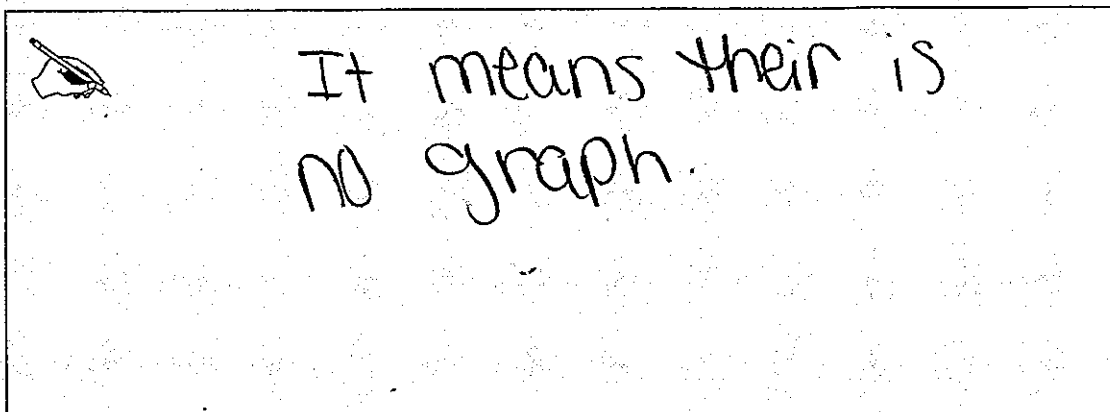 It means their is
no graph.